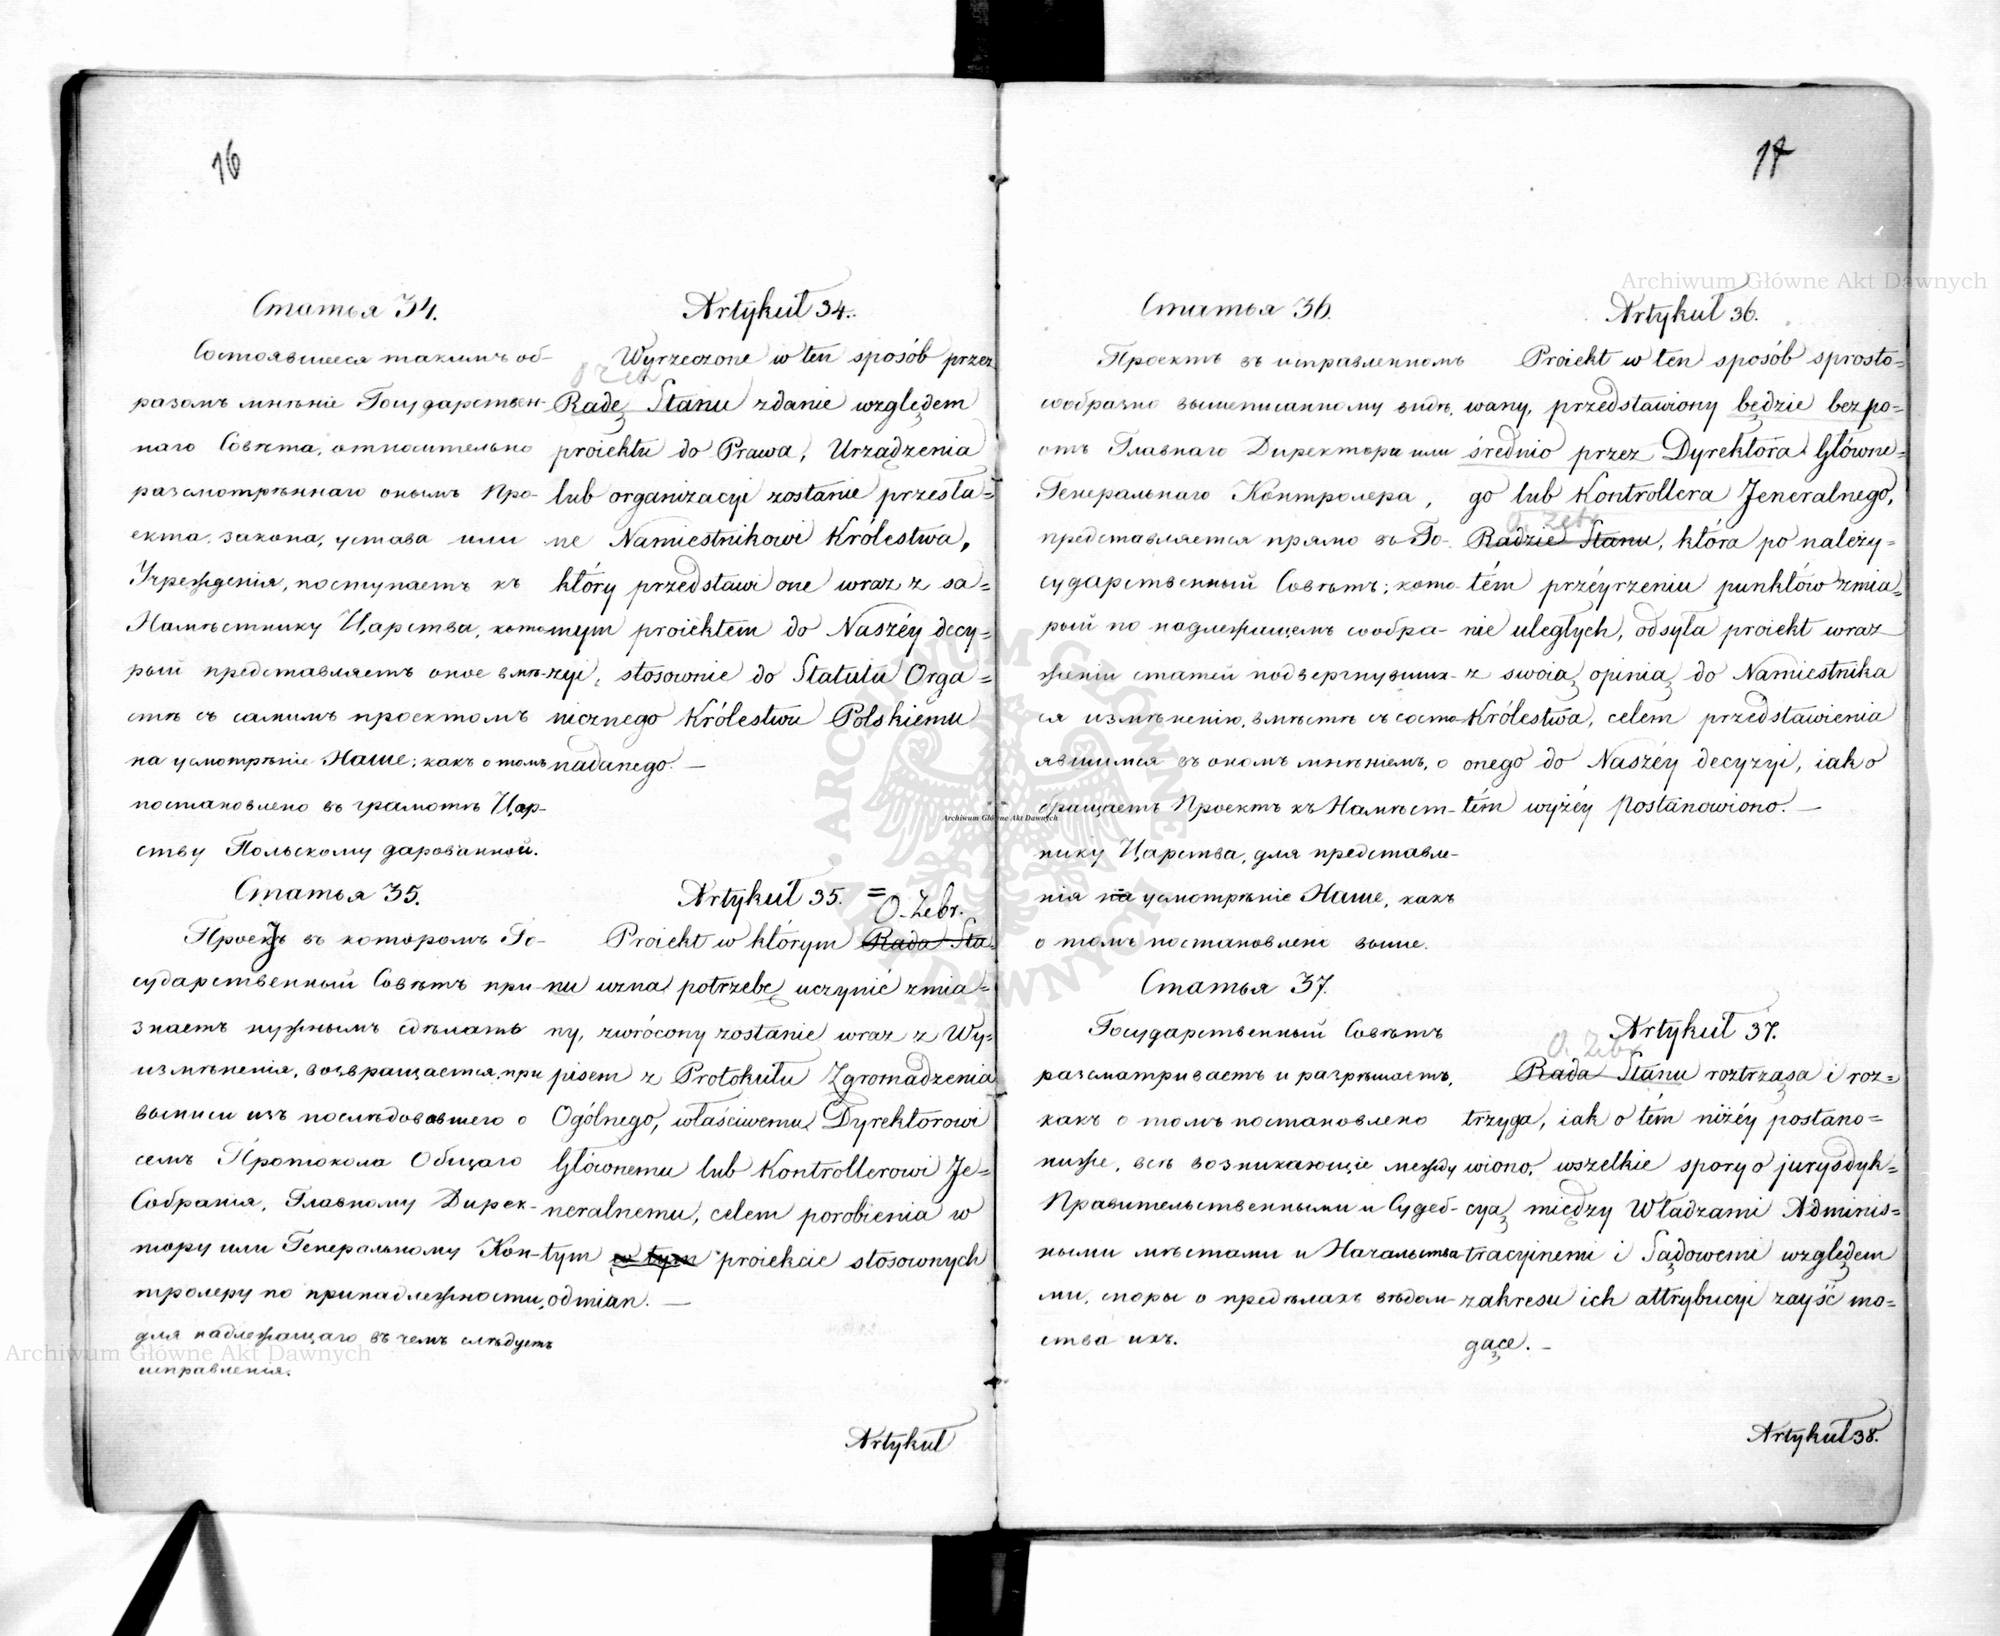 16
Статья 34.
Состоявшееся такимъ об-
разомъ мнѣніе Государствен-
наго Совѣта, относительно
разсмотрѣннаго онымъ Про-
екта закона, устава или
Учрежденія, поступаетъ къ
Намѣстнику Царства, кото-
рый представляетъ оное вмѣ-
стѣ съ самимъ проектомъ
на усмотрѣніе Наше; какъ о томъ
постановлено въ грамотѣ Цар-
ству Польскому дарованной.
Статья 35.
Проектъ въ которомъ Го-
сударственный Совѣтъ при-
знаетъ нужнымъ сдѣлать
измѣненія, возвращается, при
выписи изъ послѣдовавшего о
семъ Протокола Общаго
Собранія, Главному Дирек-
тору или Генеральному Кон-
тролеру по принадлежности,
для надлежащаго въ чемъ слѣдуетъ
исправленія.
Artykuł 34.
Wyrzeczone w ten sposób przez
O Zeb
Radę Stanu zdanie względem
proiektu do Prawa, Urządzenia
lub organizacyi zostanie przesła=
ne Namiestnikowi Królestwa,
który przedstawi one wraz z sa=
mym proiektem do Naszéy decy=
zyi, stosownie do Statutu Orga=
nicznego Królestwu Polskiemu
nadanego. —
Artykuł 35. =
O. Zebr.
Proiekt w którym Rada Sta
nu uzna potrzebę uczynić zmia=
ny, zwrócony zostanie wraz z Wy=
pisem z Protokułu Zgromadzenia
Ogólnego, właściwemu Dyrektorowi
Głównemu lub Kontrollerowi Je=
neralnemu, celem porobienia w
tym w tym proiekcie stosownych
odmian. —
Artykuł
17
Статья 36.
Проектъ въ исправленномъ
сообразно вышеписанному видѣ,
отъ Главнаго Директора или
Генеральнаго Контролера,
представляется прямо въ Го-
сударственный Совѣтъ; кото-
рый по надлежащемъ сообра-
женіи статей подвергнувших-
ся измѣненію, вмѣстѣ съ состо
явшимся въ ономъ мнѣніемъ, о
бращаетъ Проектъ къ Намѣст-
нику Царства, для представле-
нія на усмотрѣніе Наше, какъ
о томъ постановлено выше.
Статья 37.
Государственный Совѣтъ
разсматриваетъ и разрѣшаетъ,
какъ о томъ постановлено
ниже, всѣ возникающіе между
Правительственными и Судеб-
ными мѣстами и Начальства
ми, споры о предѣлахъ вѣдом-
ства ихъ.
Artykuł 36.
Proiekt w ten sposób sprosto=
wany, przedstawiony będzie bezpo=
średnio przez Dyrektora Główne=
go lub Kontrollera Jeneralnego,
O. Zebr
Radzie Stanu, która po należy=
tém przéyrzeniu punktów zmia=
nie uległych, odsyła proiekt wraz
z swoią opinią do Namiestnika
Królestwa, celem przedstawienia
onego do Naszéy decyzyi, iak o
tém wyżéy postanowiono. —
Artykuł 37.
O. Zebr
Rada Stanu roztrząsa i roz=
trzyga, iak o tém niżéy postano=
wiono, wszelkie spory o jurysdyk=
cyą między Władzami Adminis=
tracyinemi i Sądowemi względem
zakresu ich attrybucyi zayść mo=
gące. —
Artykuł 38.
Archiwum Główne Akt Dawnych
Archiwum Główne Akt Dawnych
Archiwum Główne Akt Dawnych
ARCHIWUM GŁÓWNE AKT DAWNYCH